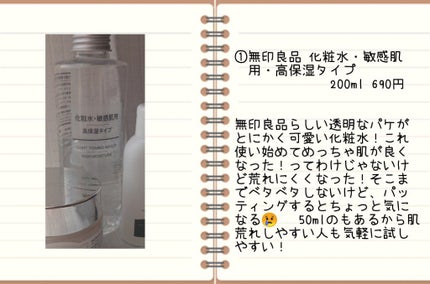 化粧水・敏感肌用
高保湿タイプ
①無印良品 化粧水・敏感肌
用・高保湿タイプ
200ml 690円
無印良品らしい透明なパケが
とにかく可愛い化粧水！これ
使い始めてめっちゃ肌が良く
なった！ってわけじゃないけ
ど荒れにくくなった！そこま
でベタベタしないけど、パッ
ティングするとちょっと気に
なる😢 50mlのもあるから肌
荒れしやすい人も気軽に試し
やすい！